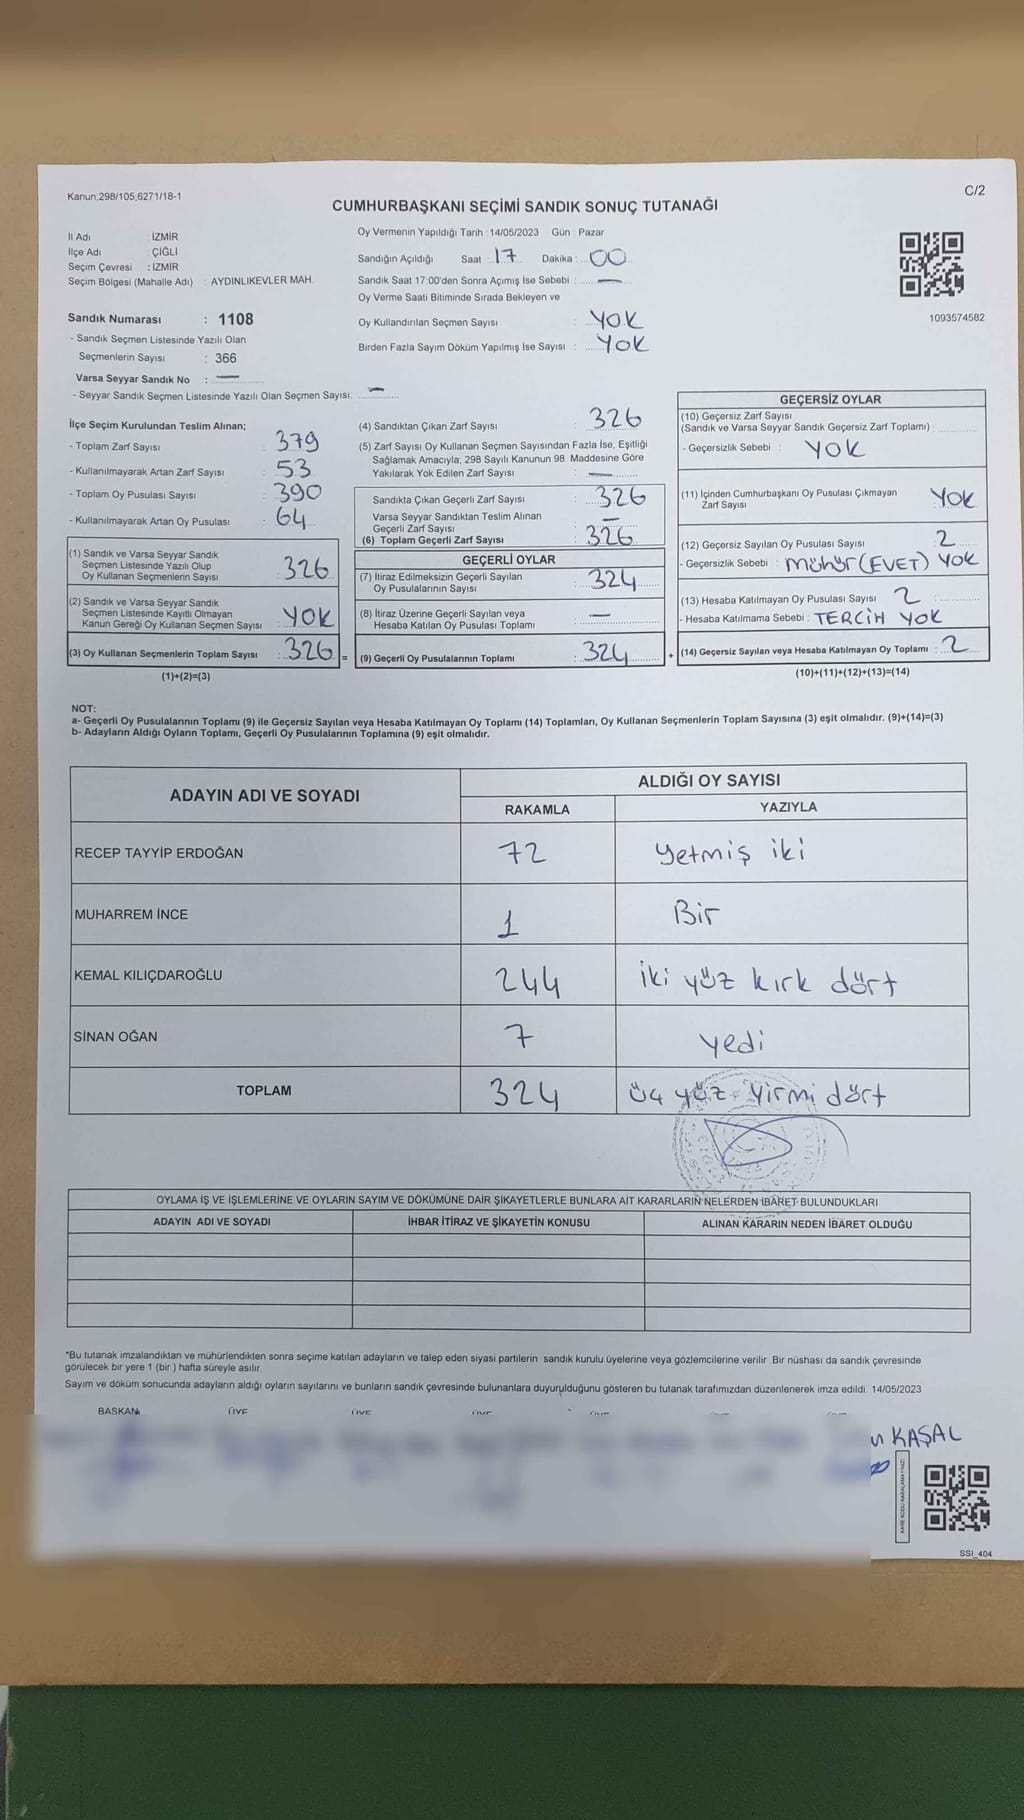 Kanun;298/105;6271/18-1
C/2
CUMHURBAŞKANI SEÇİMİ SANDIK SONUÇ TUTANAĞI
İl Adı : İZMİR
İlçe Adı : ÇİĞLİ
Seçim Çevresi : İZMİR
Seçim Bölgesi (Mahalle Adı) : AYDINLIKEVLER MAH.
Sandık Numarası : 1108
- Sandık Seçmen Listesinde Yazılı Olan
Seçmenlerin Sayısı : 366
Varsa Seyyar Sandık No : —
- Seyyar Sandık Seçmen Listesinde Yazılı Olan Seçmen Sayısı: —
Oy Vermenin Yapıldığı Tarih : 14/05/2023 Gün : Pazar
Sandığın Açıldığı Saat : 17 Dakika : 00
Sandık Saat 17:00'den Sonra Açımış İse Sebebi : —
Oy Verme Saati Bitiminde Sırada Bekleyen ve
Oy Kullandırılan Seçmen Sayısı : YOK
Birden Fazla Sayım Döküm Yapılmış İse Sayısı : YOK
1093574582
İlçe Seçim Kurulundan Teslim Alınan;
- Toplam Zarf Sayısı : 379
- Kullanılmayarak Artan Zarf Sayısı : 53
- Toplam Oy Pusulası Sayısı : 390
- Kullanılmayarak Artan Oy Pusulası : 64
(1) Sandık ve Varsa Seyyar Sandık
Seçmen Listesinde Yazılı Olup
Oy Kullanan Seçmenlerin Sayısı : 326
(2) Sandık ve Varsa Seyyar Sandık
Seçmen Listesinde Kayıtlı Olmayan
Kanun Gereği Oy Kullanan Seçmen Sayısı : YOK
(3) Oy Kullanan Seçmenlerin Toplam Sayısı : 326 =
(1)+(2)=(3)
(4) Sandıktan Çıkan Zarf Sayısı : 326
(5) Zarf Sayısı Oy Kullanan Seçmen Sayısından Fazla İse, Eşitliği
Sağlamak Amacıyla; 298 Sayılı Kanunun 98. Maddesine Göre
Yakılarak Yok Edilen Zarf Sayısı : —
Sandıkta Çıkan Geçerli Zarf Sayısı : 326
Varsa Seyyar Sandıktan Teslim Alınan
Geçerli Zarf Sayısı : —
(6) Toplam Geçerli Zarf Sayısı : 326
GEÇERLİ OYLAR
(7) İtiraz Edilmeksizin Geçerli Sayılan
Oy Pusulalarının Sayısı : 324
(8) İtiraz Üzerine Geçerli Sayılan veya
Hesaba Katılan Oy Pusulası Toplamı : —
(9) Geçerli Oy Pusulalarının Toplamı : 324 +
GEÇERSİZ OYLAR
(10) Geçersiz Zarf Sayısı
(Sandık ve Varsa Seyyar Sandık Geçersiz Zarf Toplamı) :
- Geçersizlik Sebebi : YOK
(11) İçinden Cumhurbaşkanı Oy Pusulası Çıkmayan
Zarf Sayısı YOK
(12) Geçersiz Sayılan Oy Pusulası Sayısı 2
- Geçersizlik Sebebi : mühür (EVET) YOK
(13) Hesaba Katılmayan Oy Pusulası Sayısı 2
- Hesaba Katılmama Sebebi : TERCİH YOK
(14) Geçersiz Sayılan veya Hesaba Katılmayan Oy Toplamı : 2
(10)+(11)+(12)+(13)=(14)
NOT:
a- Geçerli Oy Pusulalarının Toplamı (9) ile Geçersiz Sayılan veya Hesaba Katılmayan Oy Toplamı (14) Toplamları, Oy Kullanan Seçmenlerin Toplam Sayısına (3) eşit olmalıdır. (9)+(14)=(3)
b- Adayların Aldığı Oyların Toplamı, Geçerli Oy Pusulalarının Toplamına (9) eşit olmalıdır.
ADAYIN ADI VE SOYADI ALDIĞI OY SAYISI
RAKAMLA YAZIYLA
RECEP TAYYİP ERDOĞAN 72 yetmiş iki
MUHARREM İNCE 1 Bir
KEMAL KILIÇDAROĞLU 244 iki yüz kırk dört
SİNAN OĞAN 7 yedi
TOPLAM 324 üç yüz yirmi dört
OYLAMA İŞ VE İŞLEMLERİNE VE OYLARIN SAYIM VE DÖKÜMÜNE DAİR ŞİKAYETLERLE BUNLARA AİT KARARLARIN NELERDEN İBARET BULUNDUKLARI
ADAYIN ADI VE SOYADI İHBAR İTİRAZ VE ŞİKAYETİN KONUSU ALINAN KARARIN NEDEN İBARET OLDUĞU
*Bu tutanak imzalandıktan ve mühürlendikten sonra seçime katılan adayların ve talep eden siyasi partilerin sandık kurulu üyelerine veya gözlemcilerine verilir. Bir nüshası da sandık çevresinde
görülecek bir yere 1 (bir ) hafta süreyle asılır.
Sayım ve döküm sonucunda adayların aldığı oyların sayılarını ve bunların sandık çevresinde bulunanlara duyurulduğunu gösteren bu tutanak tarafımızdan düzenlenerek imza edildi. 14/05/2023
BAŞKAN ÜYE ÜYE
KAŞAL
SSI_404